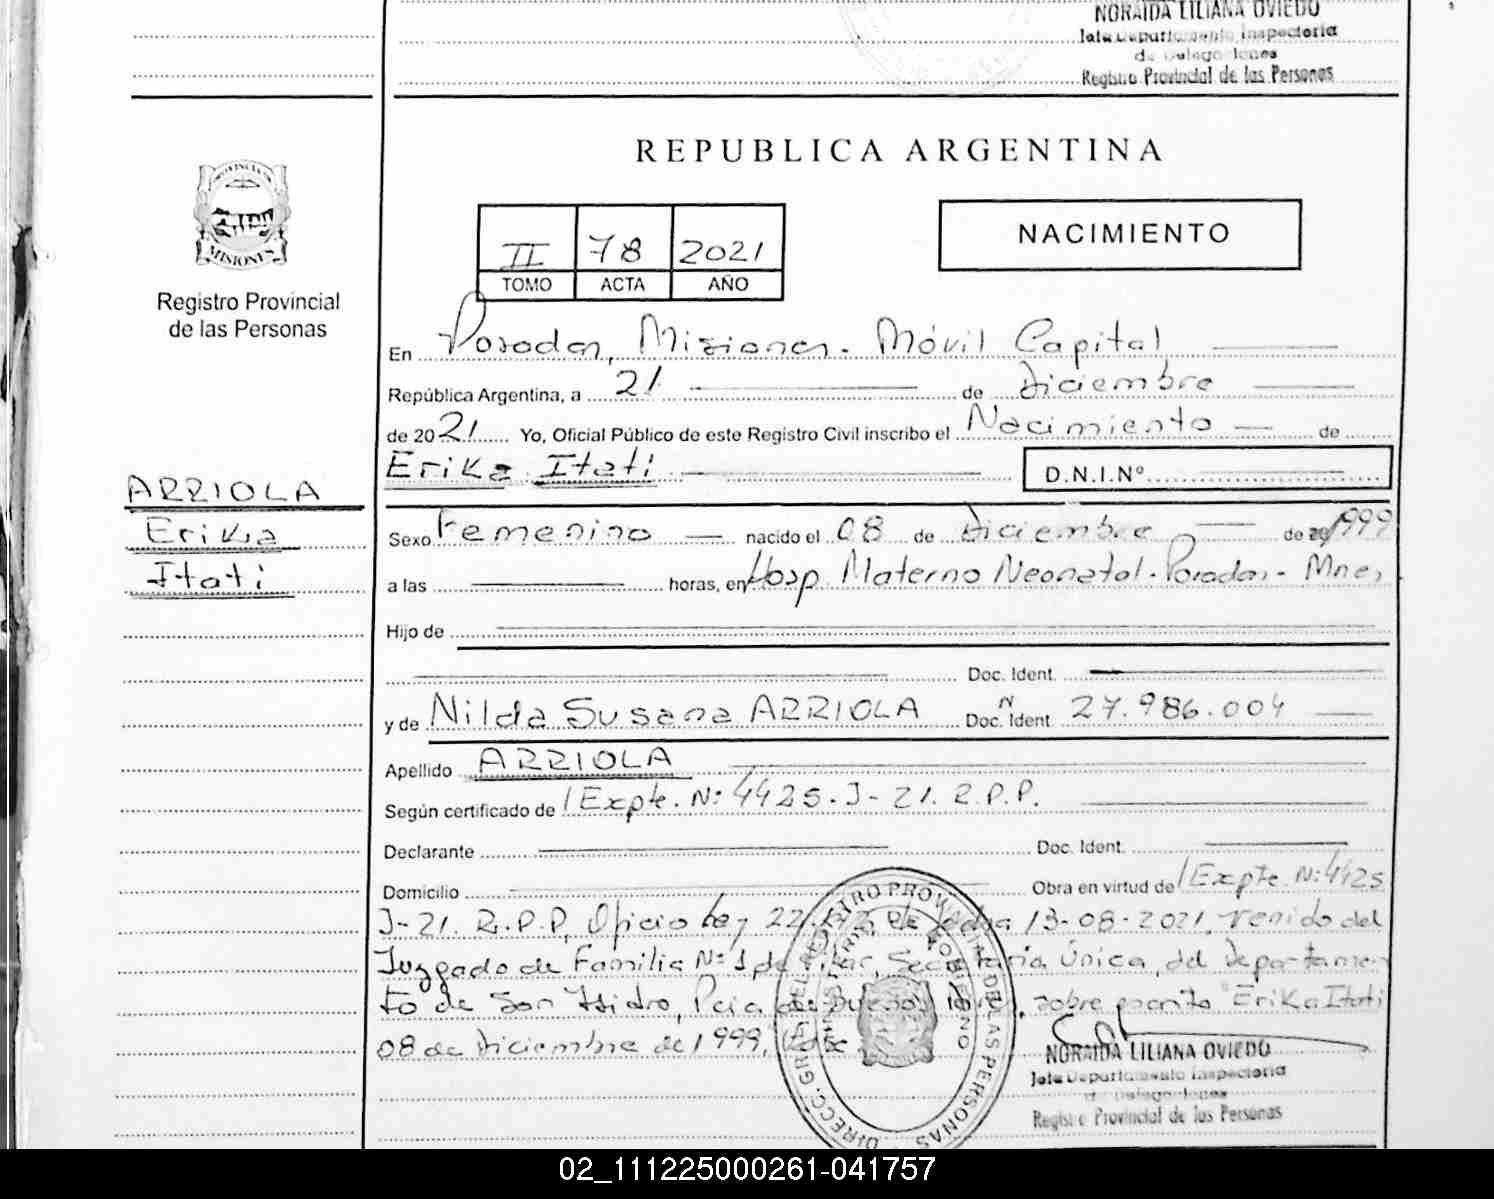 NORAIDA LILIANA OVIEDO
Jefe Departamento Inspectoria
de Delegaciones
Registro Provincial de las Personas
REPUBLICA ARGENTINA
PROVINCIA DE
MISIONES
Registro Provincial
de las Personas
II 78 2021
TOMO ACTA AÑO
NACIMIENTO
En Posadas, Misiones. Móvil Capital
República Argentina, a 21 de Diciembre
de 2021 Yo, Oficial Público de este Registro Civil inscribo el Nacimiento de
Erika Itati D.N.I.Nº
ARRIOLA
Erika
Itati
Sexo Femenino nacido el 08 de Diciembre de 1999
a las horas, en Hosp. Materno Neonatal. Posadas. Mnes.
Hijo de
Doc. Ident.
y de Nilda Susana ARRIOLA Doc. Ident. 27.986.004
Apellido ARRIOLA
Según certificado de / Expte. Nº: 4425. J- 21. R.P.P.
Declarante Doc. Ident.
Domicilio Obra en virtud de / Expte. Nº: 4425
J-21. R.P.P, Oficio Ley de fecha 13-08-2021, venido del
Juzgado de Familia Nº 1 de Pilar, Secretaria Única, del Departamen-
to de San Isidro, Pcia de Buenos Aires, sobre escrito "Erika Itati
08 de Diciembre de 1999,
NORAIDA LILIANA OVIEDO
Jefe Departamento Inspectoria
de Delegaciones
Registro Provincial de las Personas
02_111225000261-041757